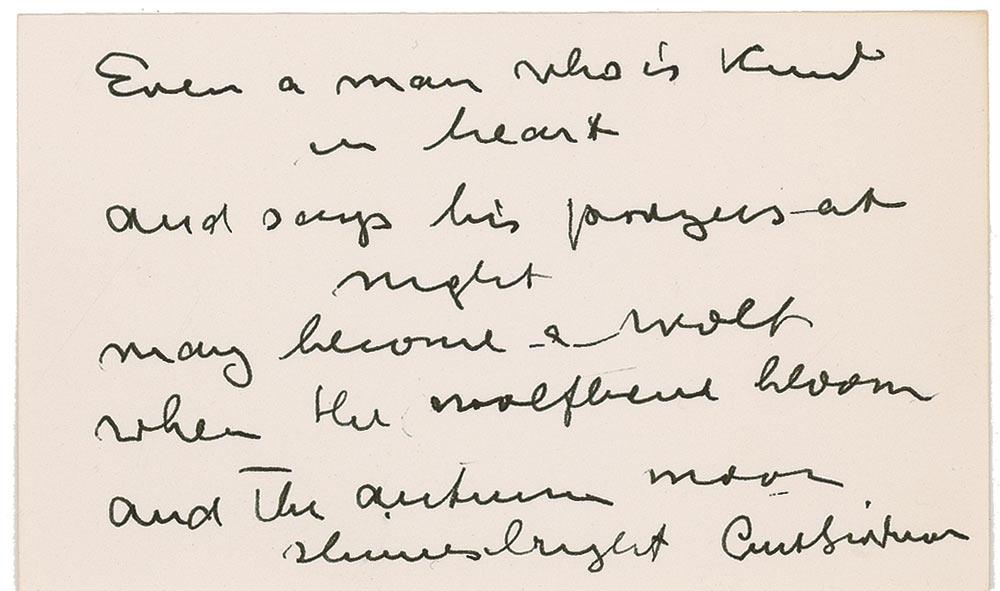 Even a man who is Kind
in heart
and says his prayers at
night
may become a wolf
when the wolfbane bloom
and The autumn moon
shines bright Curt Siodmak